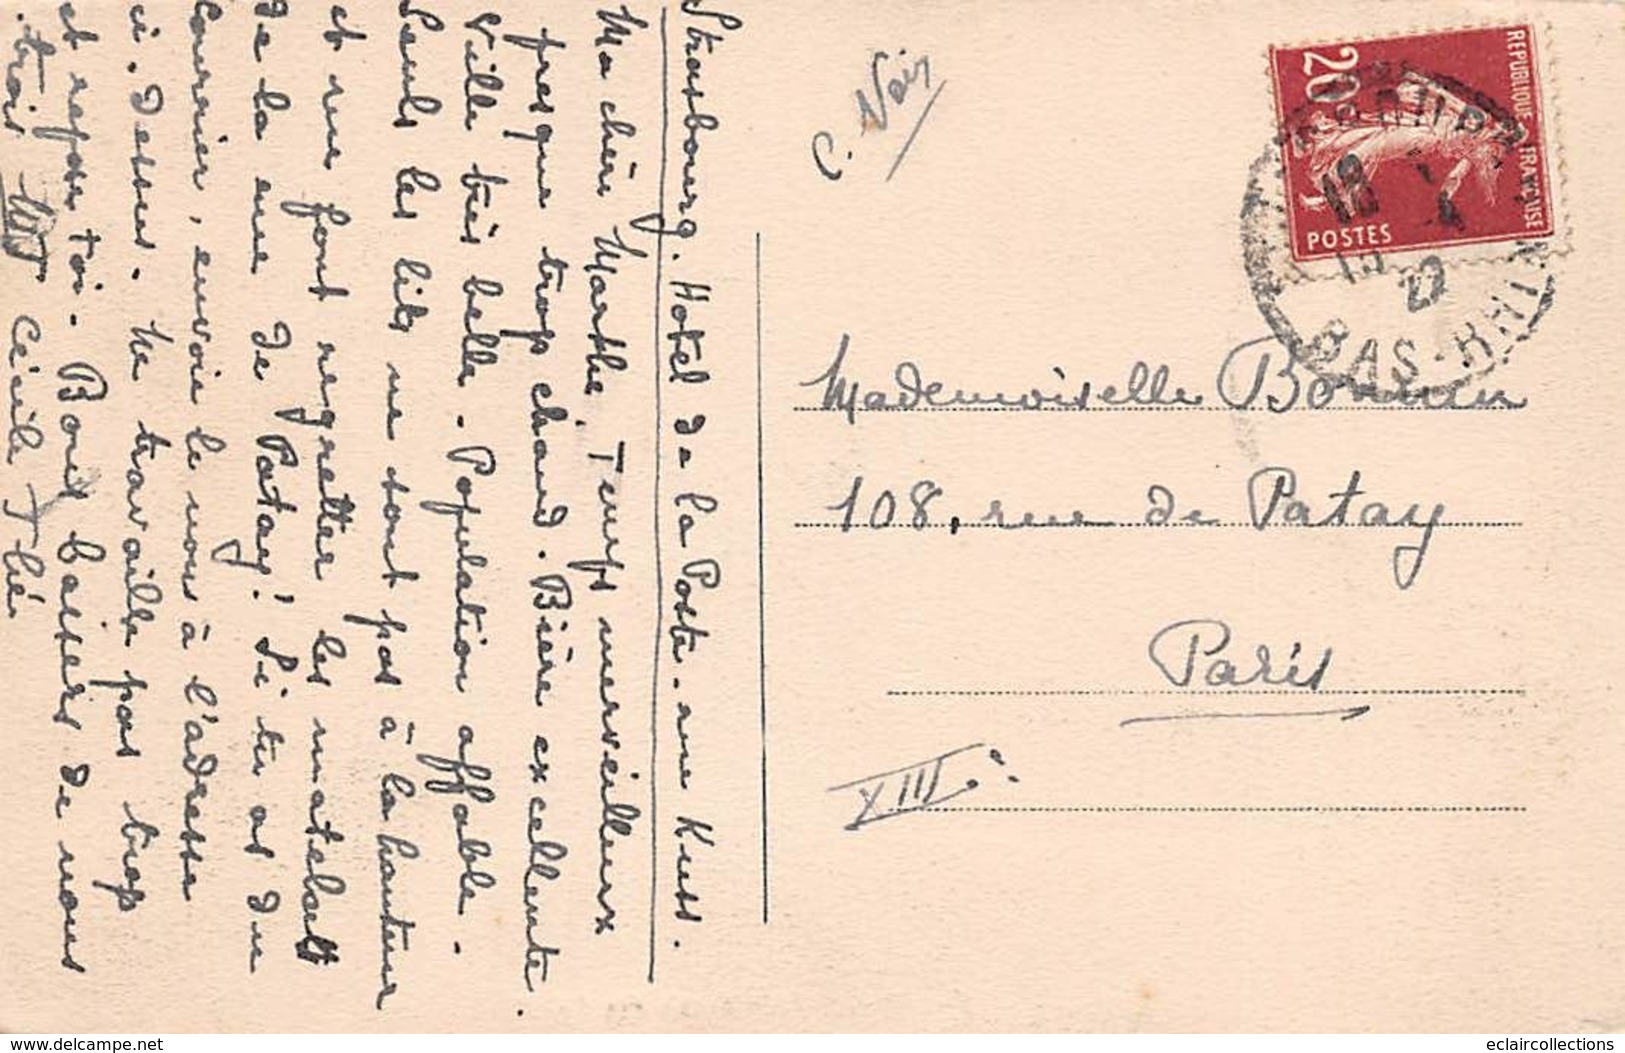 Strasbourg. Hotel de la Poste. rue Kuss.
Ma chère Marthe. Temps merveilleux
presque trop chaud. Bière excellente.
Ville très belle. Population affable.
Seuls les lits ne sont pas à la hauteur
et me font regretter les matelats
de la rue de Patay! Si tu as du
courrier, envoie le nous à l'adresse
ci. dessus. Ne travaille pas trop
et repose toi. Bons baisers de nous
trois
Cécile
C. Noir
REPUBLIQUE FRANÇAISE
20
POSTES
18
22
BAS-RHIN
Mademoiselle Bonnin
108, rue de Patay
Paris
XIII
www.delcampe.net
eclaircollections